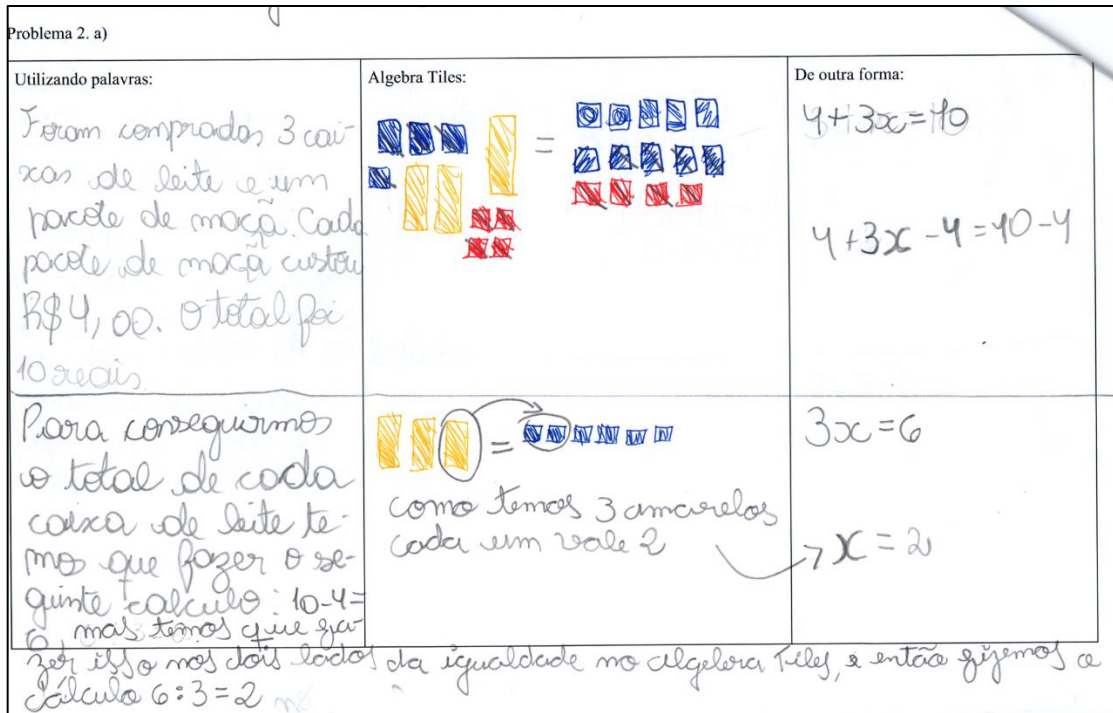 Problema 2. a)
Utilizando palavras:
Foram comprados 3 cai-
xas de leite e um
pacote de maçã. Cada
pacote de maçã custou
R$4,00. O total foi
10 reais
Algebra Tiles:
=
De outra forma:
4+3x=10
4+3x-4=10-4
Para conseguirmos
o total de cada
caixa de leite te-
mos que fazer o se-
guinte calculo: 10-4=
6, mas temos que fa-
zer isso nos dois lados da igualdade no algebra Tiles, e então fizemos o
Cálculo 6:3=2
=
como temos 3 amarelos
cada um vale 2
3x=6
x=2